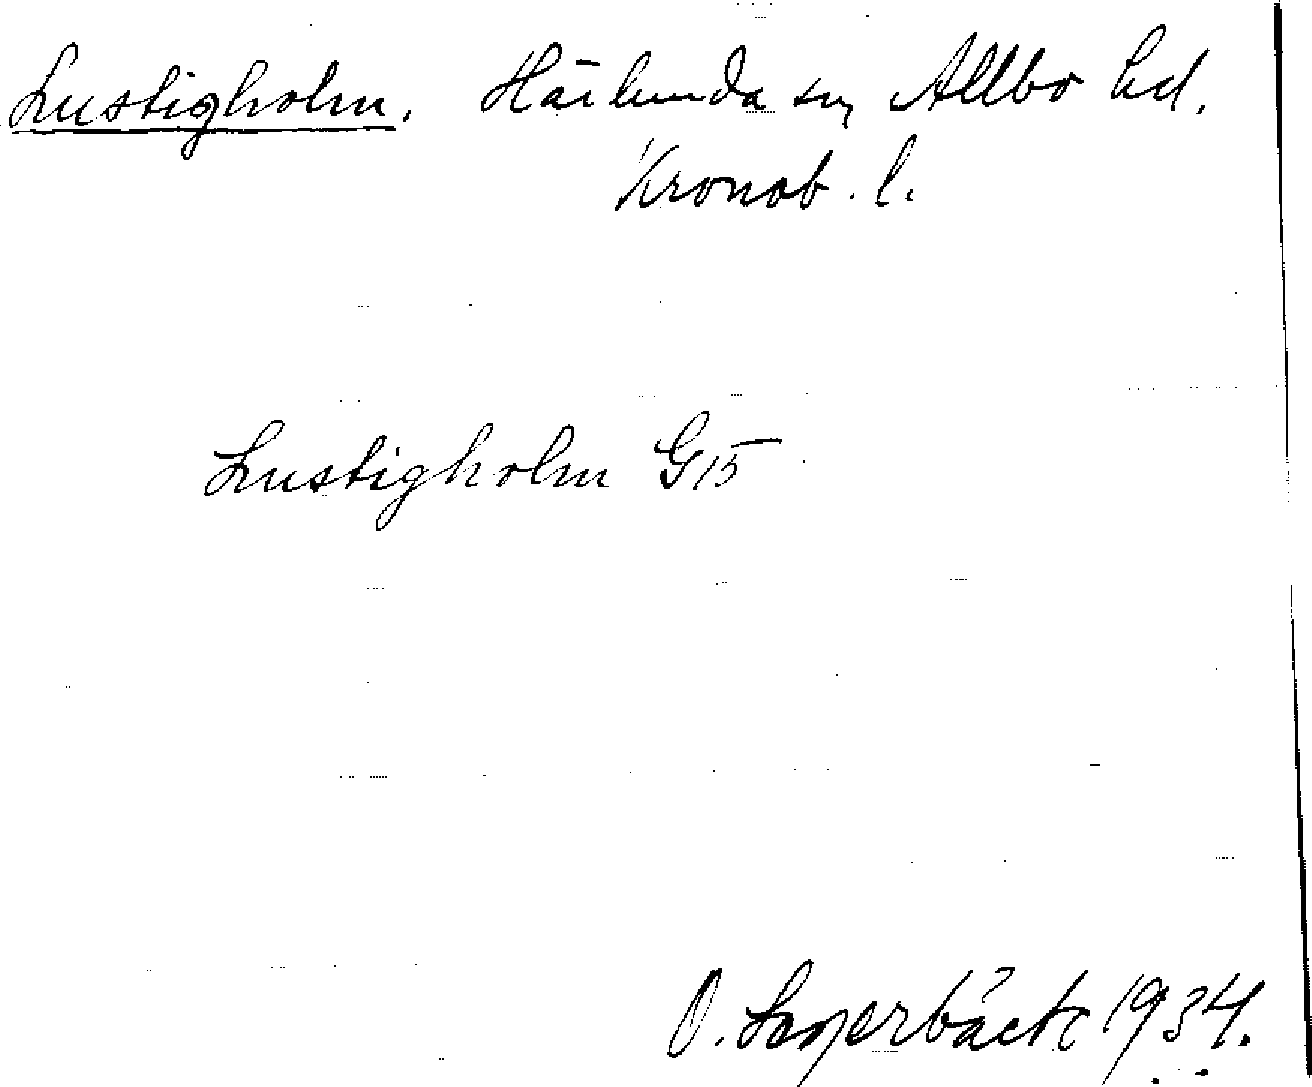 Lustigholm. Härlunda sn, Allbo hd.
Kronob. l.
Lustigholm G15
O. Lagerbäck 1934.